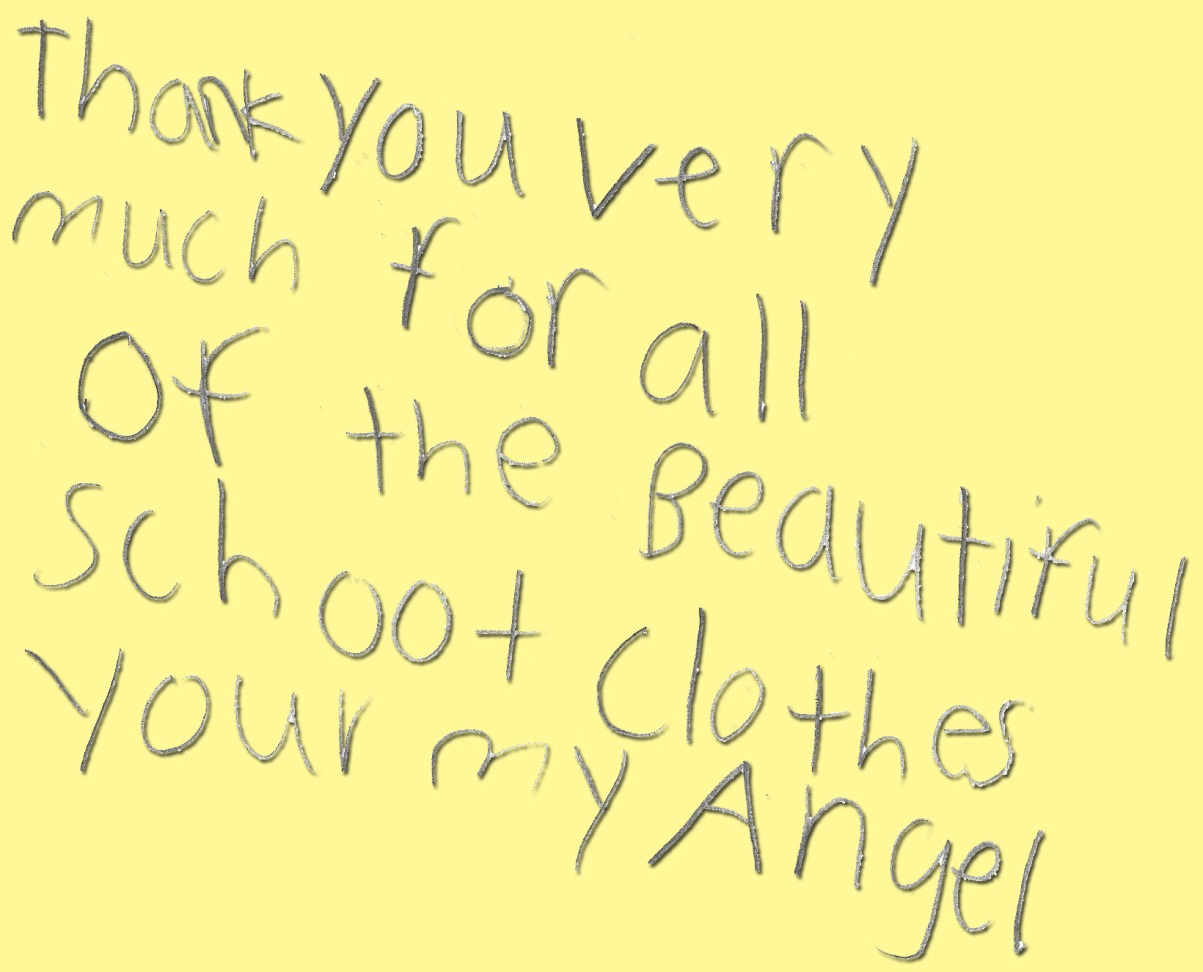 Thank you very
much for all
of the Beautiful
School clothes
your my Angel